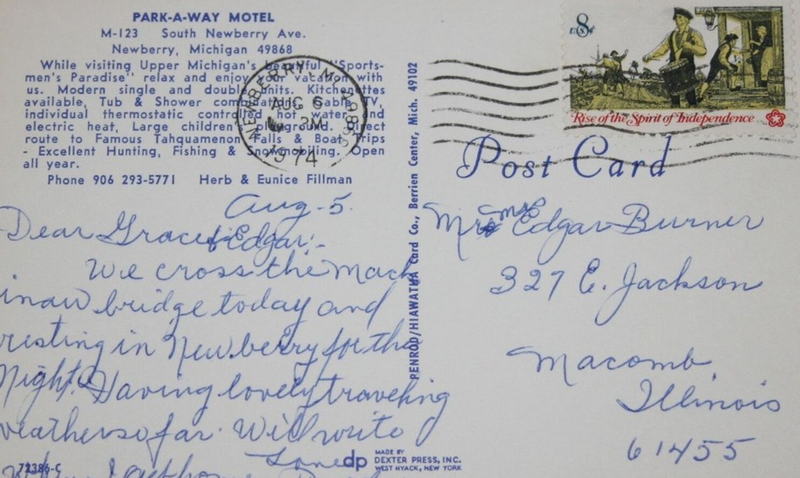 PARK-A-WAY MOTEL
M-123 South Newberry Ave.
Newberry, Michigan 49868
While visiting Upper Michigan's beautiful "Sports-
men's Paradise" relax and enjoy your vacation with
us. Modern single and double units. Kitchenettes
available, Tub & Shower combinations, Cable TV,
individual thermostatic controlled hot water and
electric heat, Large children playground. Direct
route to Famous Tahquamenon Falls & Boat Trips
- Excellent Hunting, Fishing & Snowmobiling. Open
all year.
Phone 906 293-5771 Herb & Eunice Fillman
NEWBERRY, MI 498
AUG 6
PM
1974
8c
U.S.
Rise of the Spirit of Independence
Post Card
PENROD/HIAWATHA Card Co., Berrien Center, Mich. 49102
Aug-5.
Dear Grace & Edgar:-
We cross the Mack
inaw bridge today and
resting in Newberry for the
Night. Having lovely traveling
weather so far. Will write
Love
Mr & Mrs Edgar Burner
327 E. Jackson
Macomb
Illinois
61455
72386-C
dp MADE BY
DEXTER PRESS, INC.
WEST NYACK, NEW YORK